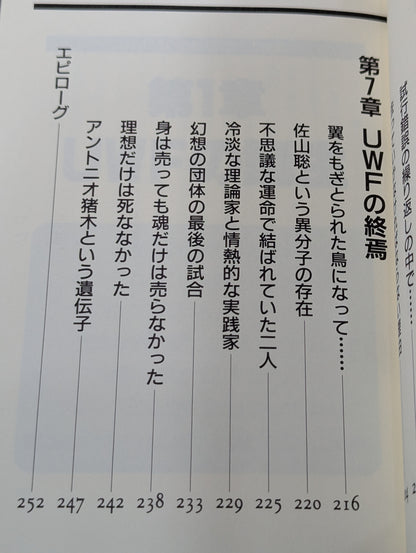 試行錯誤の繰り返しの中で……
第7章 UWFの終焉
翼をもぎとられた鳥になって…… 216
佐山聡という異分子の存在 220
不思議な運命で結ばれていた二人 225
冷淡な理論家と情熱的な実践家 229
幻想の団体の最後の試合 233
身は売っても魂だけは売らなかった 238
理想だけは死ななかった 242
アントニオ猪木という遺伝子 247
エピローグ 252